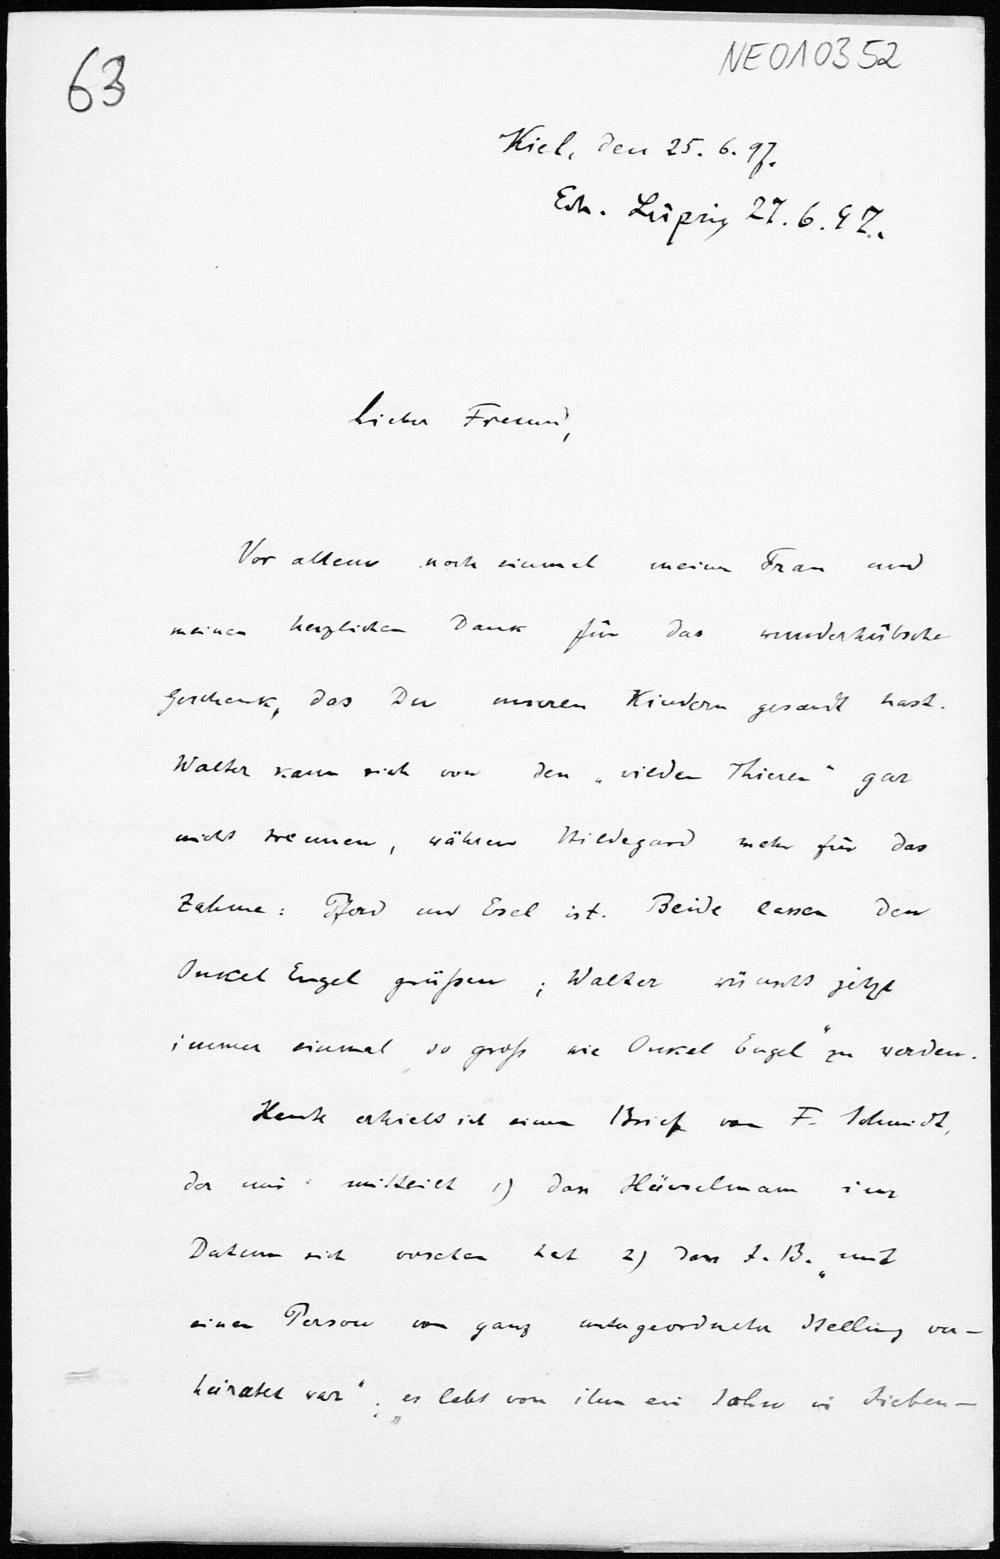 63
NE010352
Kiel, den 25.6.97.
Erh. Leipzig 27.6.97.
Lieber Freund,
Vor allem noch einmal meiner Frau und
meinen herzlichen Dank für das wunderhübsche
Geschenk, das Du unseren Kindern gesandt hast.
Walter kann sich von den „wilden Thieren“ gar
nicht trennen, während Hildegard mehr für das
Zahme: Pferd und Esel ist. Beide lassen den
Onkel Engel grüßen; Walter wünscht jetzt
immer einmal „so groß wie Onkel Engel“ zu werden.
Heute erhielt ich einen Brief von F. Schmidt,
der mir mitteilt 1) dass Hänselmann im
Datum sich versehen hat 2) dass J. B. „mit
einer Person von ganz untergeordneter Stellung ver-
heiratet war“; „es lebt von ihm ein Sohn in Sieben-